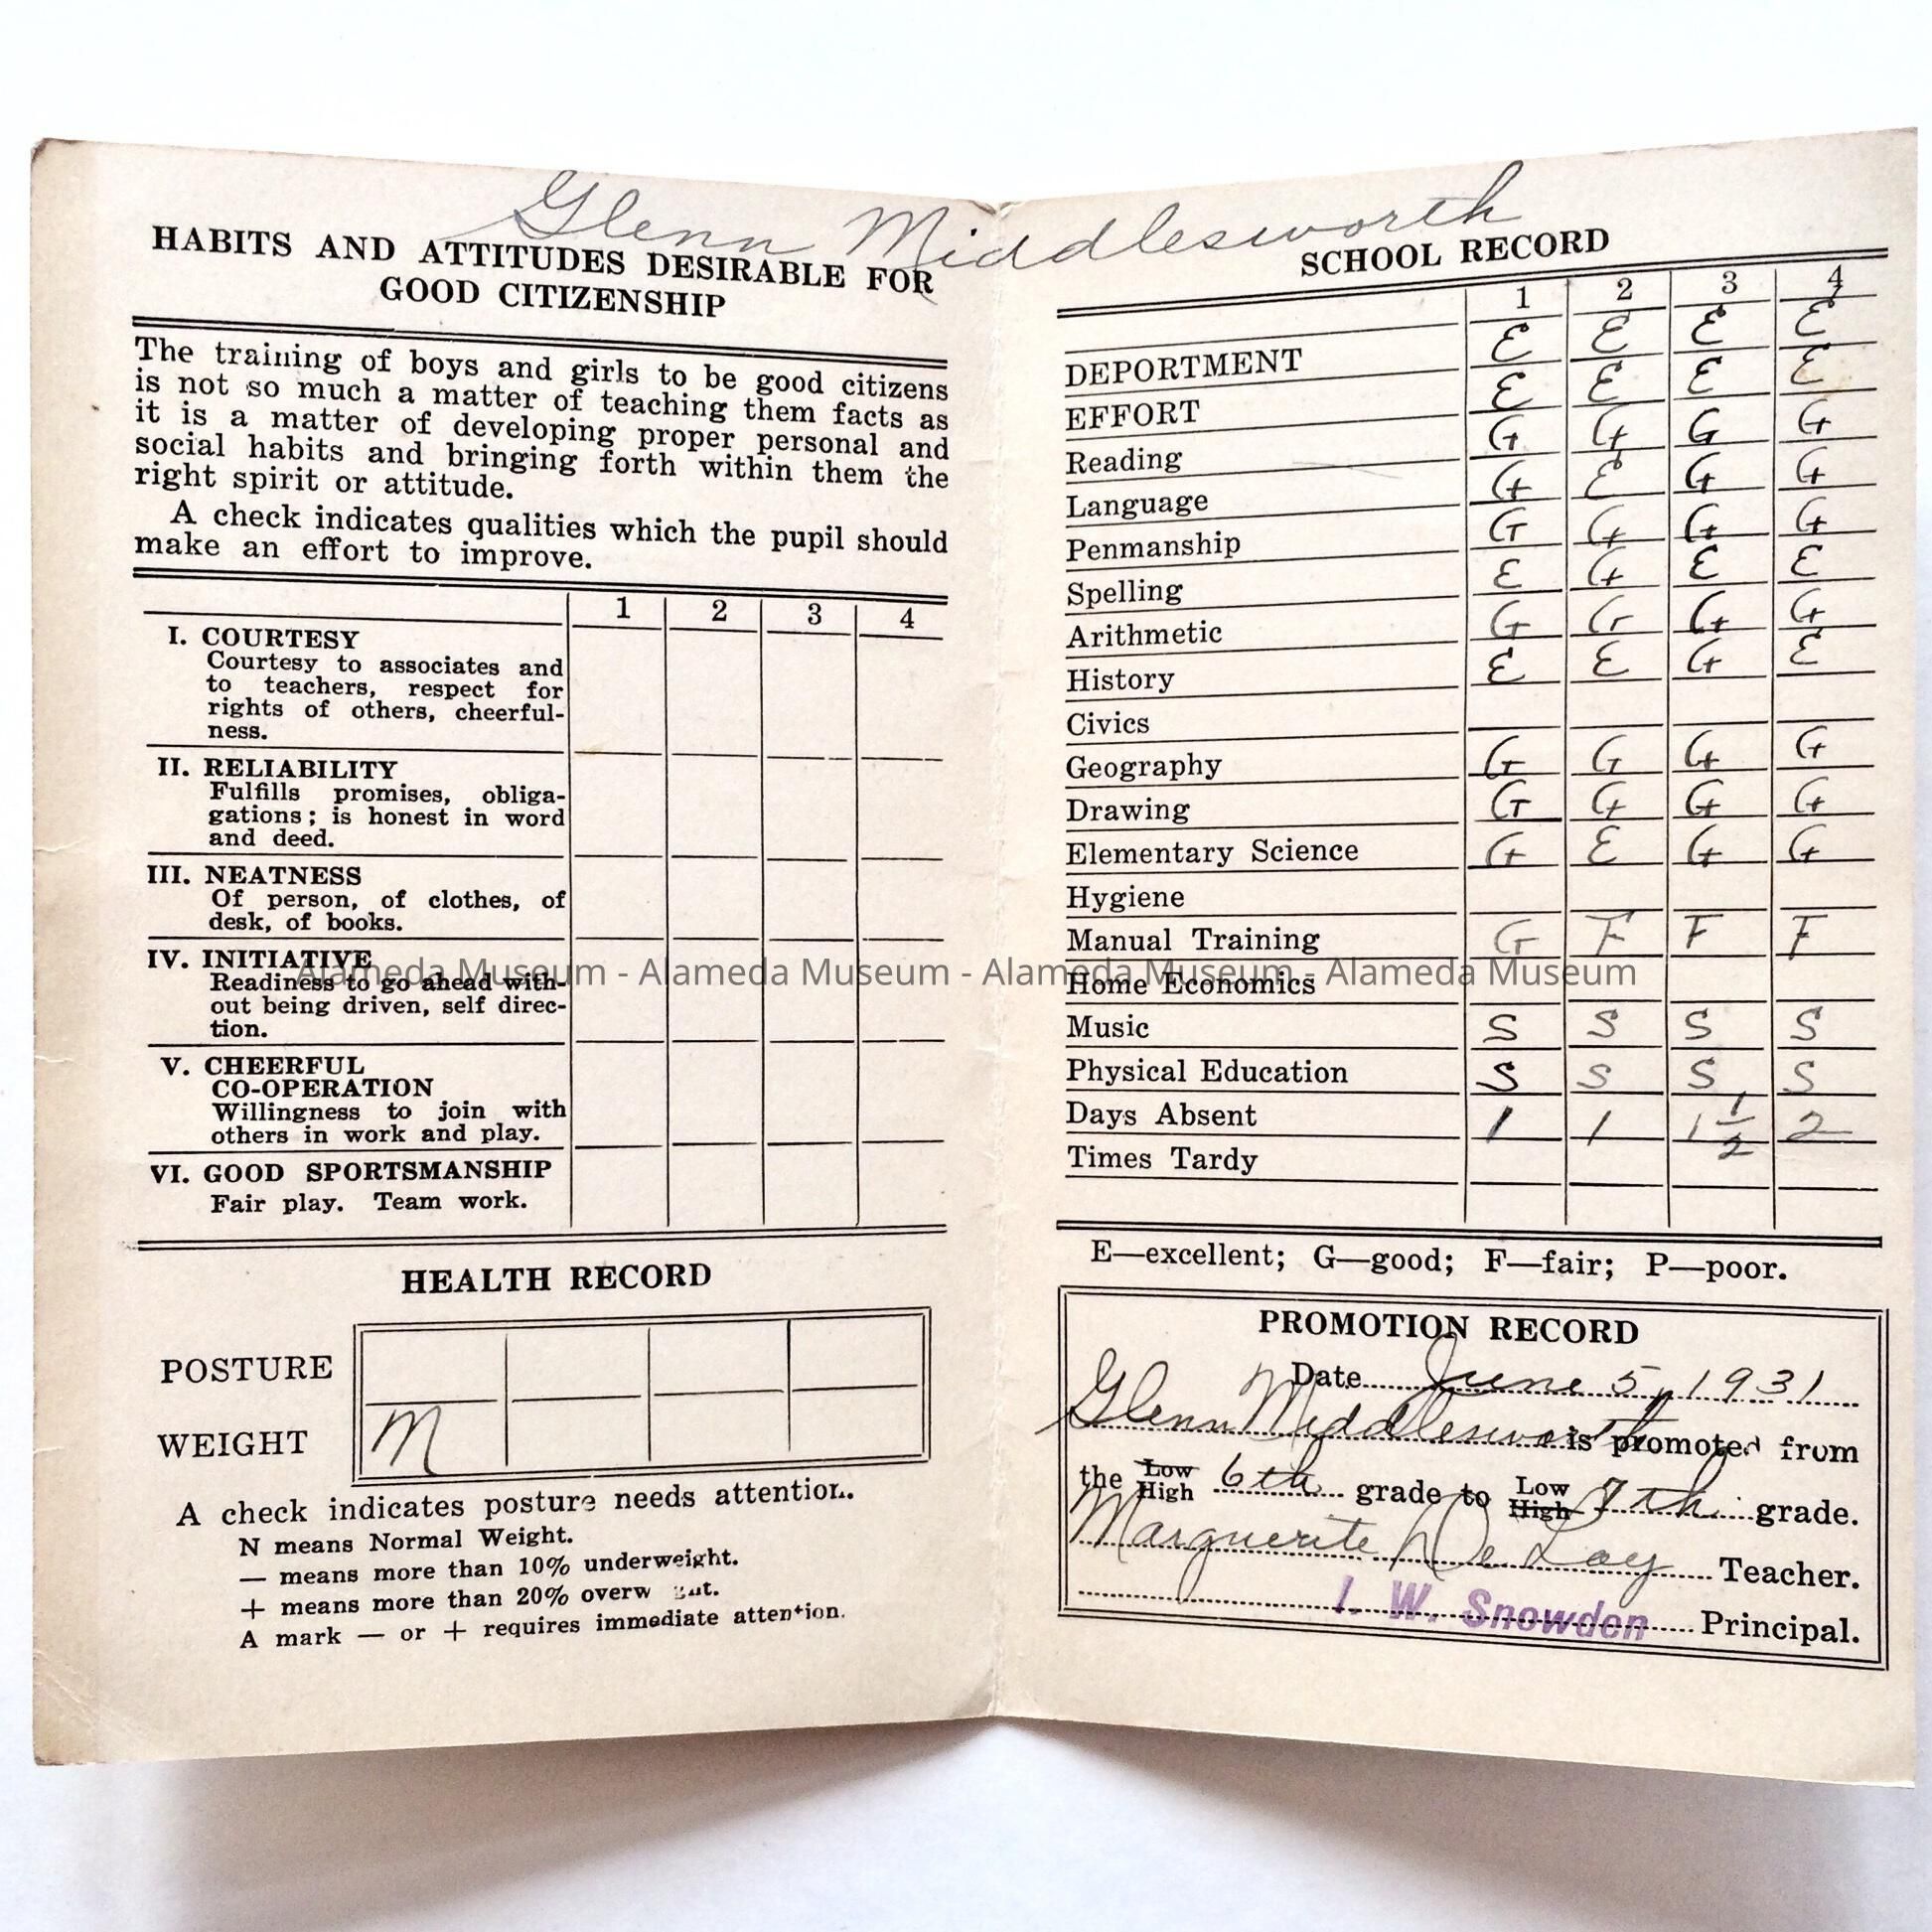 Glenn Middlesworth
HABITS AND ATTITUDES DESIRABLE FOR
GOOD CITIZENSHIP
The training of boys and girls to be good citizens
is not so much a matter of teaching them facts as
it is a matter of developing proper personal and
social habits and bringing forth within them the
right spirit or attitude.
A check indicates qualities which the pupil should
make an effort to improve.
1 2 3 4
I. COURTESY
Courtesy to associates and
to teachers, respect for
rights of others, cheerful-
ness.
II. RELIABILITY
Fulfills promises, obliga-
gations; is honest in word
and deed.
III. NEATNESS
Of person, of clothes, of
desk, of books.
IV. INITIATIVE
Readiness to go ahead with-
out being driven, self direc-
tion.
V. CHEERFUL
CO-OPERATION
Willingness to join with
others in work and play.
VI. GOOD SPORTSMANSHIP
Fair play. Team work.
HEALTH RECORD
POSTURE
WEIGHT N
A check indicates posture needs attention.
N means Normal Weight.
— means more than 10% underweight.
+ means more than 20% overw
A mark — or + requires immediate attention.
SCHOOL RECORD
1 2 3 4
DEPORTMENT E E E E
EFFORT E E E E
Reading G G G G
Language G E G G
Penmanship G G G G
Spelling E G E E
Arithmetic G G G G
History E E G E
Civics
Geography G G G G
Drawing G G G G
Elementary Science G E G G
Hygiene
Manual Training G F F F
Home Economics
Music S S S S
Physical Education S S S S
Days Absent 1 1 1 1/2 2
Times Tardy
E—excellent; G—good; F—fair; P—poor.
PROMOTION RECORD
Date June 5, 1931
Glenn Middlesworth is promoted from
the Low High 6th grade to Low High 7th grade.
Marguerite De Lay Teacher.
I. W. Snowden Principal.
Alameda Museum - Alameda Museum - Alameda Museum - Alameda Museum